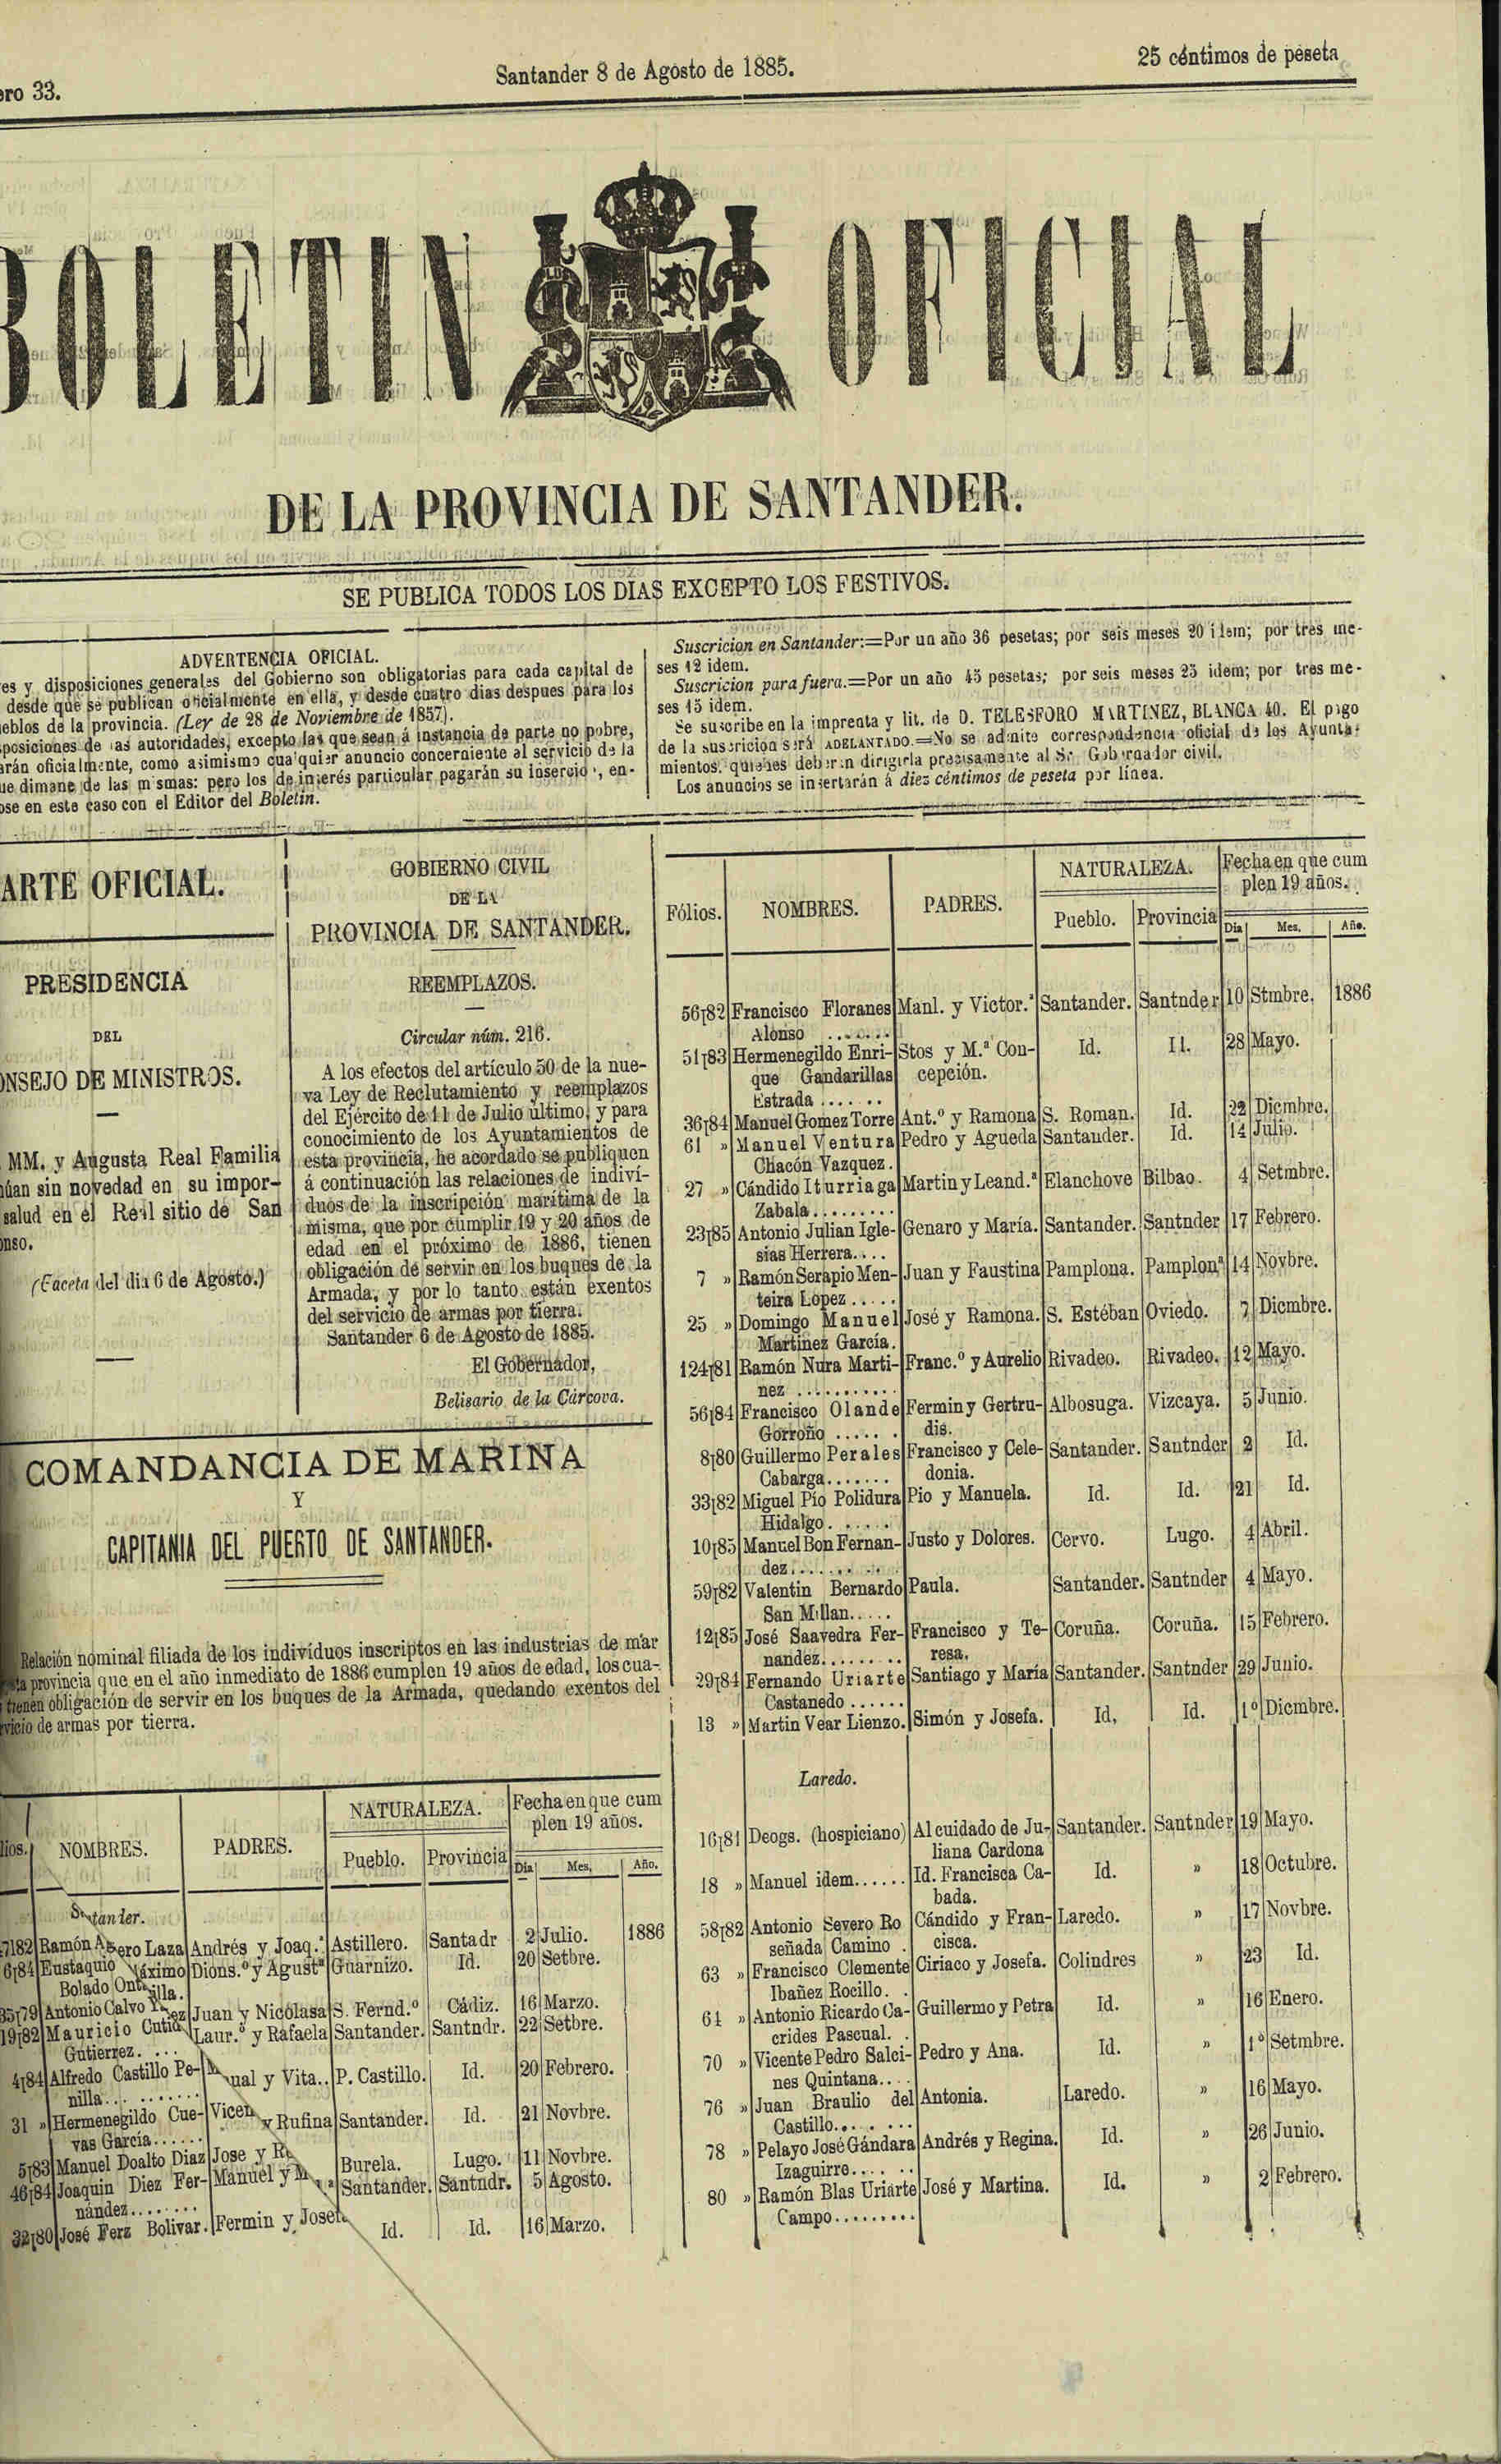 ero 33.
Santander 8 de Agosto de 1885.
25 céntimos de peseta
BOLETIN OFICIAL
DE LA PROVINCIA DE SANTANDER.
SE PUBLICA TODOS LOS DIAS EXCEPTO LOS FESTIVOS.
ADVERTENCIA OFICIAL.
es y disposiciones generales del Gobierno son obligatorias para cada capital de
desde que se publican oficialmente en ella, y desde cuatro dias despues para los
eblos de la provincia. (Ley de 28 de Noviembre de 1857).
posiciones de las autoridades, excepto las que sean á instancia de parte no pobre,
arán oficialmente, como asimismo cualquier anuncio concerniente al servicio de la
ue dimane de las mismas: pero los de interés particular pagarán su inserció , en-
ose en este caso con el Editor del Boletin.
Suscricion en Santander:=Por un año 36 pesetas; por seis meses 20 idem; por tres me-
ses 12 idem.
Suscricion para fuera.=Por un año 45 pesetas; por seis meses 25 idem; por tres me-
ses 15 idem.
Se suscribe en la imprenta y lit. de D. TELESFORO MARTINEZ, BLANCA 40. El pago
de la suscricion será ADELANTADO.=No se admite correspondencia oficial de los Ayunta-
mientos, quienes deberán dirigirla precisamente al Sr. Gobernador civil.
Los anuncios se insertarán á diez céntimos de peseta por línea.
ARTE OFICIAL.
PRESIDENCIA
DEL
ONSEJO DE MINISTROS.
MM. y Augusta Real Familia
núan sin novedad en su impor-
salud en el Real sitio de San
onso.
(Gaceta del dia 6 de Agosto.)
GOBIERNO CIVIL
DE LA
PROVINCIA DE SANTANDER.
REEMPLAZOS.
Circular núm. 216.
A los efectos del artículo 50 de la nue-
va Ley de Reclutamiento y reemplazos
del Ejército de 11 de Julio último, y para
conocimiento de los Ayuntamientos de
esta provincia, he acordado se publiquen
á continuación las relaciones de indiví-
duos de la inscripción marítima de la
misma, que por cumplir 19 y 20 años de
edad en el próximo de 1886, tienen
obligación de servir en los buques de la
Armada, y por lo tanto están exentos
del servicio de armas por tierra.
Santander 6 de Agosto de 1885.
El Gobernador,
Belisario de la Cárcova.
COMANDANCIA DE MARINA
Y
CAPITANIA DEL PUERTO DE SANTANDER.
Relación nominal filiada de los indivíduos inscriptos en las industrias de mar
ta provincia que en el año inmediato de 1886 cumplen 19 años de edad, los cua-
tienen obligación de servir en los buques de la Armada, quedando exentos del
vicio de armas por tierra.
lios. NOMBRES. PADRES. NATURALEZA. Fecha en que cum
plen 19 años.
Pueblo. Provincia Dia Mes. Año.
Santander.
7182 Ramón Asero Laza Andrés y Joaq.ª Astillero. Santadr 2 Julio. 1886
6184 Eustaquio Máximo Dions.º y Agustª Guarnizo. Id. 20 Setbre.
Bolado Ontavilla.
35179 Antonio Calvo Juan y Nicolasa S. Fernd.º Cádiz. 16 Marzo.
19182 Mauricio Cutia Laur.º y Rafaela Santander. Santndr. 22 Setbre.
Gutierrez. . . .
4184 Alfredo Castillo Pe- ual y Vita.. P. Castillo. Id. 20 Febrero.
nilla...........
31 » Hermenegildo Cue- Vicen y Rufina Santander. Id. 21 Novbre.
vas García......
5183 Manuel Doalto Diaz Jose y R Burela. Lugo. 11 Novbre.
46184 Joaquin Diez Fer- Manuel y M ª Santander. Santndr. 5 Agosto.
nández.......
32180 José Ferz Bolivar. Fermin y Josefa Id. Id. 16 Marzo.
Fólios. NOMBRES. PADRES. NATURALEZA. Fecha en que cum
plen 19 años.
Pueblo. Provincia Dia Mes. Año.
56182 Francisco Floranes Manl. y Victor.ª Santander. Santnder 10 Stmbre. 1886
Alonso .......
51183 Hermenegildo Enri- Stos y M.ª Con- Id. Id. 28 Mayo.
que Gandarillas cepción.
Estrada ......
36184 Manuel Gomez Torre Ant.º y Ramona S. Roman. Id. 22 Dicmbre.
61 » Manuel Ventura Pedro y Agueda Santander. Id. 14 Julio.
Chacón Vazquez.
27 » Cándido Iturriaga Martin y Leand.ª Elanchove Bilbao. 4 Setmbre.
Zabala.........
23185 Antonio Julian Igle- Genaro y María. Santander. Santnder 17 Febrero.
sias Herrera....
7 » Ramón Serapio Men- Juan y Faustina Pamplona. Pamplonª 14 Novbre.
teira Lopez.....
25 » Domingo Manuel José y Ramona. S. Estéban Oviedo. 7 Dicmbre.
Martinez García.
124181 Ramón Nura Marti- Franc.º y Aurelio Rivadeo. Rivadeo. 12 Mayo.
nez ..........
56184 Francisco Olande Fermin y Gertru- Albosuga. Vizcaya. 5 Junio.
Gorroño ...... dis.
8180 Guillermo Perales Francisco y Cele- Santander. Santnder 2 Id.
Cabarga....... donia.
33182 Miguel Pío Polidura Pio y Manuela. Id. Id. 21 Id.
Hidalgo......
10185 Manuel Bon Fernan- Justo y Dolores. Cervo. Lugo. 4 Abril.
dez..........
59182 Valentin Bernardo Paula. Santander. Santnder 4 Mayo.
San Millan.....
12185 José Saavedra Fer- Francisco y Te- Coruña. Coruña. 15 Febrero.
nandez........ resa.
29184 Fernando Uriarte Santiago y María Santander. Santnder 29 Junio.
Castanedo ......
13 » Martin Vear Lienzo. Simón y Josefa. Id. Id. 1º Dicmbre.
Laredo.
16181 Deogs. (hospiciano) Al cuidado de Ju- Santander. Santnder 19 Mayo.
liana Cardona
18 » Manuel idem...... Id. Francisca Ca- Id. » 18 Octubre.
bada.
58182 Antonio Severo Ro Cándido y Fran- Laredo. » 17 Novbre.
señada Camino . cisca.
63 » Francisco Clemente Ciriaco y Josefa. Colindres » 23 Id.
Ibañez Rocillo. .
64 » Antonio Ricardo Ca- Guillermo y Petra Id. » 16 Enero.
crides Pascual. .
70 » Vicente Pedro Salci- Pedro y Ana. Id. » 1º Setmbre.
nes Quintana....
76 » Juan Braulio del Antonia. Laredo. » 16 Mayo.
Castillo........
78 » Pelayo José Gándara Andrés y Regina. Id. » 26 Junio.
Izaguirre......
80 » Ramón Blas Uriarte José y Martina. Id. » 2 Febrero.
Campo.........